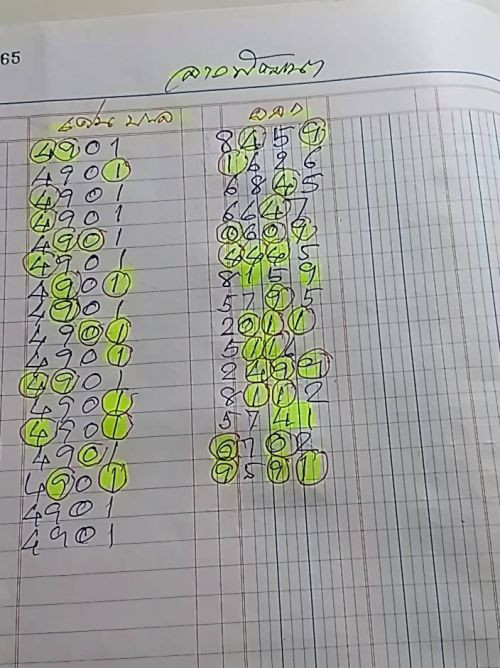 65
ลาวพัฒนา
เด่น บน ออก
4901 8459
4901 1626
4901 6845
4901 6647
4901 0609
4901 4445
4901 8159
4901 5795
4901 2011
4901 511
4901 2499
4901 8112
4901 5741
4901 0702
4901 9591
4901
4901